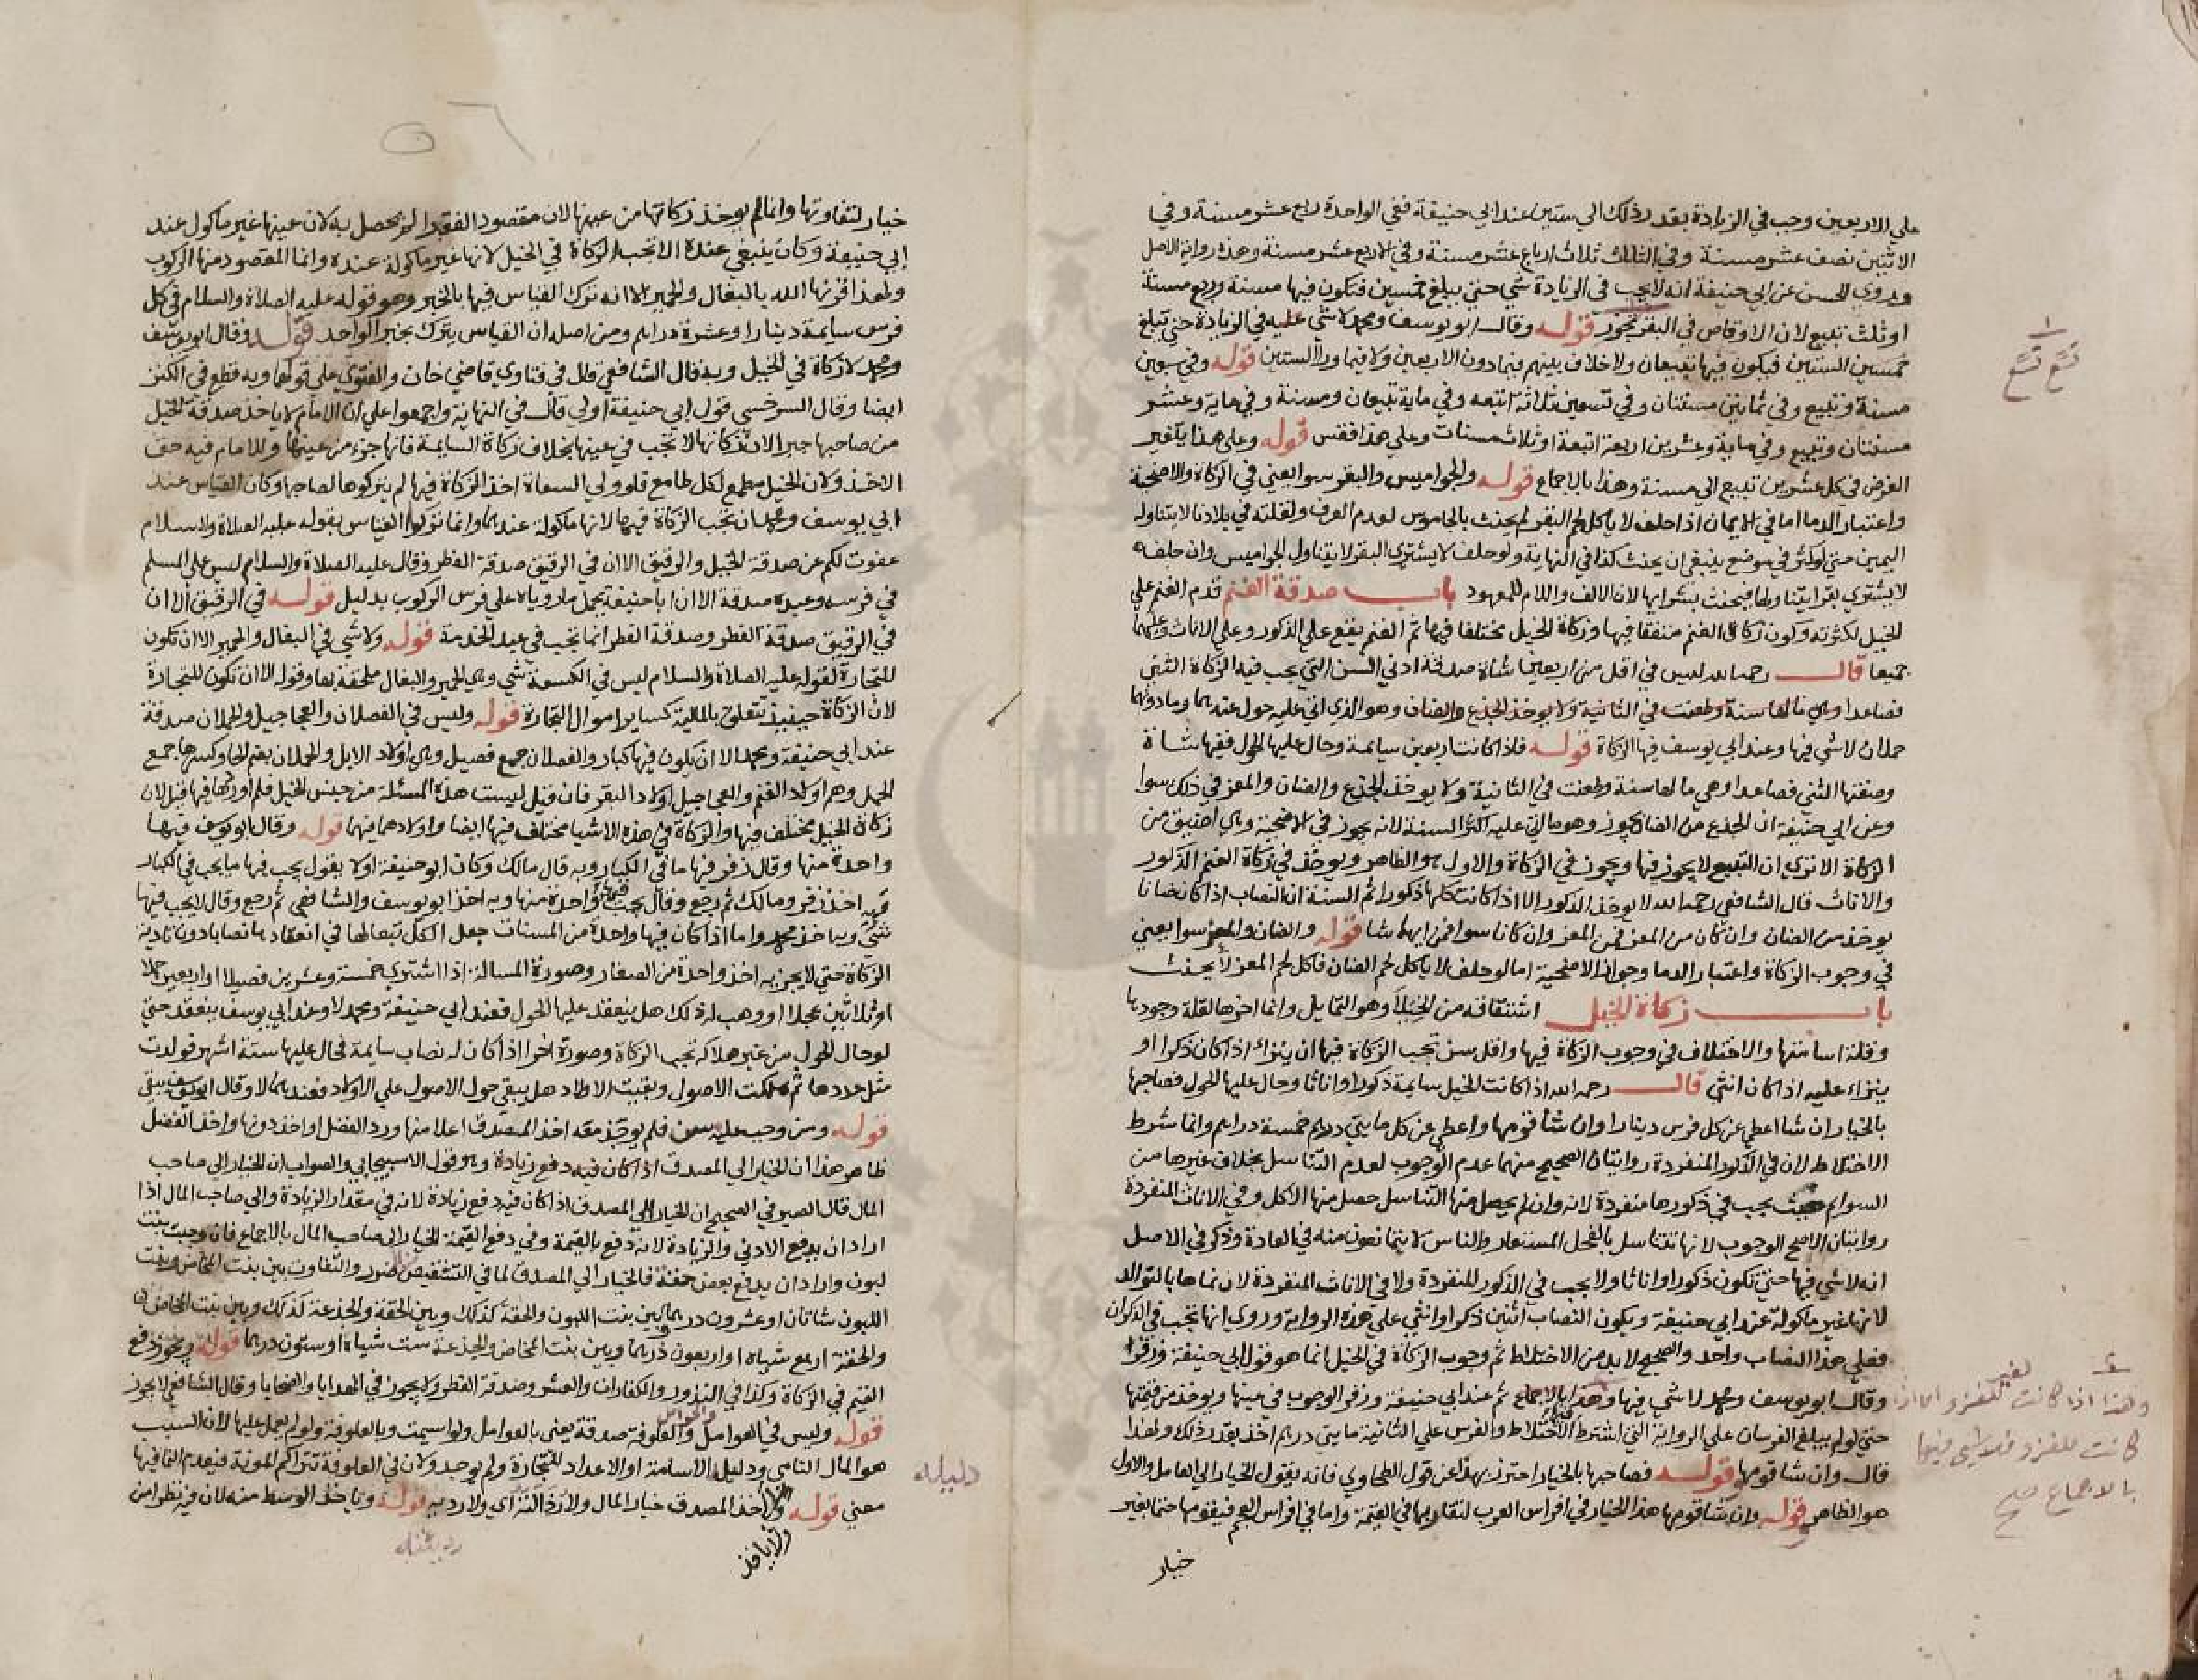 علي الاربعين وجب في الزيادة بقدر ذلك الي ستين عند ابي حنيفة ففي الواحدة ربع عشر مسنة وفي
الاثنين نصف عشر مسنة وفي الثالث ثلاث ارباع عشر مسنة وفي الاربع عشر مسنة وهذه رواية الاصل
وروي الحسن عن ابي حنيفة انه لا يجب في الزيادة شي حتي يبلغ خمسين فتكون فيها مسنة وربع مسنة
او ثلث تبيع لان الاوقاص في البقر تجوز قوله وقال ابو يوسف ومحمد لا شي عليه في الزيادة حتي تبلغ
الستين فيكون فيها تبيعان ولا خلاف بينهم فيما دون الاربعين ولا فيما ورا الستين قوله وفي سبعين
مسنة وتبيع وفي ثمانين مسنتان وفي تسعين ثلاثة اتبعة وفي ماية تبيعان ومسنة وفي ماية وعشر
مسنتان وتبيع وفي ماية وعشرين اربعة اتبعة او ثلاث مسنات وعلي هذا فقس قوله وعلي هذا يتغير
الفرض في كل عشر من تبيع الي مسنة وهذا بالاجماع قوله والجواميس والبقر سوا يعني في الزكاة والاضحية
واعتبار الدما اما في الايمان اذا حلف لا ياكل لحم البقر لم يحنث بالجاموس لعدم العرف ولقلته في بلادنا لا يتناوله
اليمين حتي لو كثر في موضع ينبغي ان يحنث كذا في النهاية ولو حلف لا يشتري البقر لا يتناول الجواميس وان حلف
لا يشتري بقرا يتناولها فيحنث بشرايها لان الالف واللام للمعهود باب صدقة الغنم قدم الغنم علي
الخيل لكثرته وكون زكاة الغنم متفقا فيها وزكاة الخيل مختلفا فيها ثم الغنم يقع علي الذكور وعلي الاناث وعليهما
جميعا قال رحمه الله ليس في اقل من اربعين شاة صدقة ادني السن التي يجب فيه الزكاة الثني
فصاعدا وهي ما لها سنة وطعنت في الثانية ولا يوخذ الجذع والضان وهو الذي اتي عليه حول عندهما وما دونهما
حملان لا شي فيها وعند ابي يوسف فيها الزكاة قوله فاذا كانت اربعين سايمة وحال عليها الحول ففيها شاة
وصفتها الثني فصاعدا وهي ما لها سنة وطعنت في الثانية ولا يوخذ الجذع والضان والمعز في ذلك سوا
وعن ابي حنيفة ان الجذع من الضان يجوز وهو ما اتي عليه اكثر السنة لانه يجوز في الاضحية وهي اضيق من
الزكاة الا تري ان التبيع لا يجوز فيها ويجوز في الزكاة والاول هو الظاهر ويوخذ في زكاة الغنم الذكور
والاناث قال الشافعي رحمه الله لا يوخذ الذكور الا اذا كانت كلها ذكورا ثم السنة ان النصاب اذا كان ضانا
يوخذ من الضان وان كان من المعز فمن المعز وان كانا سوا فمن ايهما شا قوله والضان والمعز سوا يعني
في وجوب الزكاة واعتبار الدما وجواز الاضحية اما لو حلف لا ياكل لحم الضان فاكل لحم المعز لا يحنث
باب زكاة الخيل اشتقاقه من الخيلا وهو التمايل وانما اخرها لقلة وجودها
وقلة اسامتها والاختلاف في وجوب الزكاة فيها واقل سن تجب الزكاة فيها ان ينزاء اذا كان ذكرا او
ينزاء عليه اذا كان انثي قال رحمه الله اذا كانت الخيل سايمة ذكورا واناثا وحال عليها الحول فصاحبها
بالخيار ان شا اعطي عن كل فرس دينارا وان شا قومها واعطي عن كل مايتي درهم خمسة دراهم وانما شرط
الاختلاط لان في الذكور المنفردة روايتان الصحيح منهما عدم الوجوب لعدم التناسل بخلاف غيرها من
السوايم حيث يجب في ذكورها منفردة لانه وان لم يحصل منها التناسل حصل منها الاكل وفي الاناث المنفردة
روايتان الاصح الوجوب لانها تتناسل بالفحل المستعار والناس لا يتمانعون منه في العادة وذكر في الاصل
انه لا شي فيها حتي تكون ذكورا واناثا ولا يجب في الذكور المنفردة ولا في الاناث المنفردة لان نماها بالتوالد
لانها غير ماكولة عند ابي حنيفة ويكون النصاب اثنين ذكرا وانثي علي هذه الرواية وروي انها تجب في الذكران
فعلي هذا النصاب واحد والصحيح لا بد من الاختلاط ثم وجوب الزكاة في الخيل انما هو قول ابي حنيفة وزفر
وقال ابو يوسف ومحمد لا شي فيها وهذا بالاجماع ثم عند ابي حنيفة وزفر الوجوب في عينها ويوخذ من قيمتها
حتي لو لم يبلغ الفرسان علي الرواية التي اشترط الاختلاط والفرس علي الثانية مايتي درهم اخذ بقدر ذلك ولهذا
قال وان شا قومها قوله فصاحبها بالخيار احترز بهذا عن قول الطحاوي فانه يقول الخيار الي العامل والاول
هو الظاهر قوله وان شا قومها هذا الخيار في افراس العرب لتقاربها في القيمة واما في افراس العجم فيقومها حتما بغير
خيار
تبيع تبيع
وهذا اذا كانت لغير للغزو اما اذا
كانت للغزو فلا شي فيها
بالاجماع صح
خيار لتفاوتها وانما لم يوخذ زكاتها من عينها لان مقصود الفقير لا يحصل به لان عينها غير ماكول عند
ابي حنيفة وكان ينبغي عنده الا تجب الزكاة في الخيل لانها غير ماكولة عنده وانما المقصود منها الركوب
ولهذا قرنها الله بالبغال والحمير الا انه ترك القياس فيها بالخبر وهو قوله عليه الصلاة والسلام في كل
فرس سايمة دينارا وعشرة دراهم ومن اصله ان القياس يترك بخبر الواحد قوله وقال ابو يوسف
ومحمد لا زكاة في الخيل وبه قال الشافعي قال في فتاوي قاضي خان والفتوي علي قولهما وبه قطع في الكنز
ايضا وقال السرخسي قول ابي حنيفة اولي قال في النهاية واجمعوا علي ان الامام لا ياخذ صدقة الخيل
من صاحبها جبرا لان زكاتها لا تجب في عينها بخلاف زكاة السايمة فانها جزء من عينها وللامام فيه حق
الاخذ ولان الخيل مطمع لكل طامع فلو ولي السعاة اخذ الزكاة فيها لم يتركوها لصاحبها وكان القياس عند
ابي يوسف ومحمد ان تجب الزكاة فيها لانها ماكولة عندهما وانما تركوا القياس بقوله عليه الصلاة والسلام
عفوت لكم عن صدقة الخيل والرقيق الا ان في الرقيق صدقة الفطر وقال عليه الصلاة والسلام ليس علي المسلم
في فرسه وعبده صدقة الا ان ابا حنيفة يحمل ما روياه علي فرس الركوب بدليل قوله في الرقيق الا ان
في الرقيق صدقة الفطر وصدقة الفطر انما تجب في عبد الخدمة قوله ولا شي في البغال والحمير الا ان تكون
للتجارة لقوله عليه الصلاة والسلام ليس في الكسعة شي وهي الحمير والبغال ملحقة بها وقوله الا ان تكون للتجارة
لان الزكاة حينيذ تتعلق بالمالية كساير اموال التجارة قوله وليس في الفصلان والعجاجيل والحملان صدقة
عند ابي حنيفة ومحمد الا ان يكون فيها كبار والفصلان جمع فصيل وهي اولاد الابل والحملان بضم الحا وكسرها جمع
الحمل وهم اولاد الغنم والعجاجيل اولاد البقر فان قيل ليست هذه المسئلة من جنس الخيل فلم اوردها فيها قيل لان
زكاة الخيل مختلف فيها والزكاة في هذه الاشيا مختلف فيها ايضا واولادهما فيها قوله وقال ابو يوسف فيها
واحدة منها وقال زفر فيها ما في الكبار وبه قال مالك وكان ابو حنيفة اولا يقول يجب فيها ما يجب في الكبار
وبه اخذ زفر ومالك ثم رجع وقال يجب فيها واحدة منها وبه اخذ ابو يوسف والشافعي ثم رجع وقال لا يجب فيها
شي وبه اخذ محمد واما اذا كان فيها واحدة من المسنات جعل الكل تبعا لها في انعقادها نصابا دون تادية
الزكاة حتي لا يجزيه اخذ واحدة من الصغار وصورة المسالة اذا اشتري خمسة وعشرين فصيلا او اربعين حملا
او ثلاثين عجلا او وهب له ذلك هل ينعقد عليها الحول فعند ابي حنيفة ومحمد لا وعند ابي يوسف ينعقد حتي
لو حال الحول من غير هلاكه تجب الزكاة وصورة اخرا اذا كان له نصاب سايمة فحال عليها ستة اشهر فولدت
مثل عددها ثم هلكت الاصول وبقيت الاولاد هل يبقي حول الاصول علي الاولاد فعندهما لا وقال ابو يوسف يبقي
قوله ومن وجب عليه سن فلم يوجد معه اخذ المصدق اعلا منها ورد الفضل او اخذ دونها واخذ الفضل
ظاهر هذا ان الخيار الي المصدق اذا كان فيه دفع زيادة وهو قول الاسبيجابي والصواب ان الخيار الي صاحب
المال قال الصيرفي الصحيح ان الخيار الي المصدق اذا كان فيه دفع زيادة لانه في مقدار الزيادة والي صاحب المال اذا
اراد ان يدفع الادني والزيادة لانه دفع بالقيمة وفي دفع القيمة الخيار الي صاحب المال بالاجماع فان وجبت بنت
لبون واراد ان يدفع بعض حقة فالخيار الي المصدق لما في التشقيص ضرر والتفاوت بين بنت المخاض وبنت
اللبون شاتان او عشرون درهما وبين بنت اللبون والحقة كذلك وبين الحقة والجذعة كذلك وبين بنت المخاض
والحقة اربع شياه او اربعون درهما وبين بنت المخاض والجذعة ست شياه او ستون درهما قوله ويجوز دفع
القيم في الزكاة وكذا في النذور والكفارات والعشر وصدقة الفطر ولا يجوز في الهدايا والضحايا وقال الشافعي لا يجوز
قوله وليس في العوامل والحوامل والعلوفة صدقة يعني بالعوامل ولو اسيمت وبالعلوفة ولو لم يعمل عليها لان السبب
هو المال النامي ودليله الاسامة او الاعداد للتجارة ولم يوجد ولان في العلوفة تتراكم المونة فينعدم النما فيها
معني قوله ولا ياخذ المصدق خيار المال ولا رذالته اي ولا رديه قوله وياخذ الوسط منه لان فيه نظرا من
ولا ياخذ
دليله
رديئه